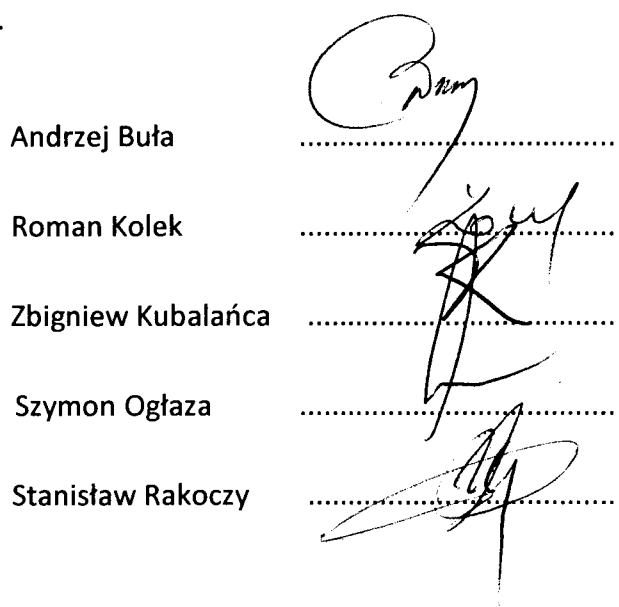 Andrzej Buła ..........................................
Roman Kolek ..........................................
Zbigniew Kubalańca ..........................................
Szymon Ogłaza ..........................................
Stanisław Rakoczy ..........................................